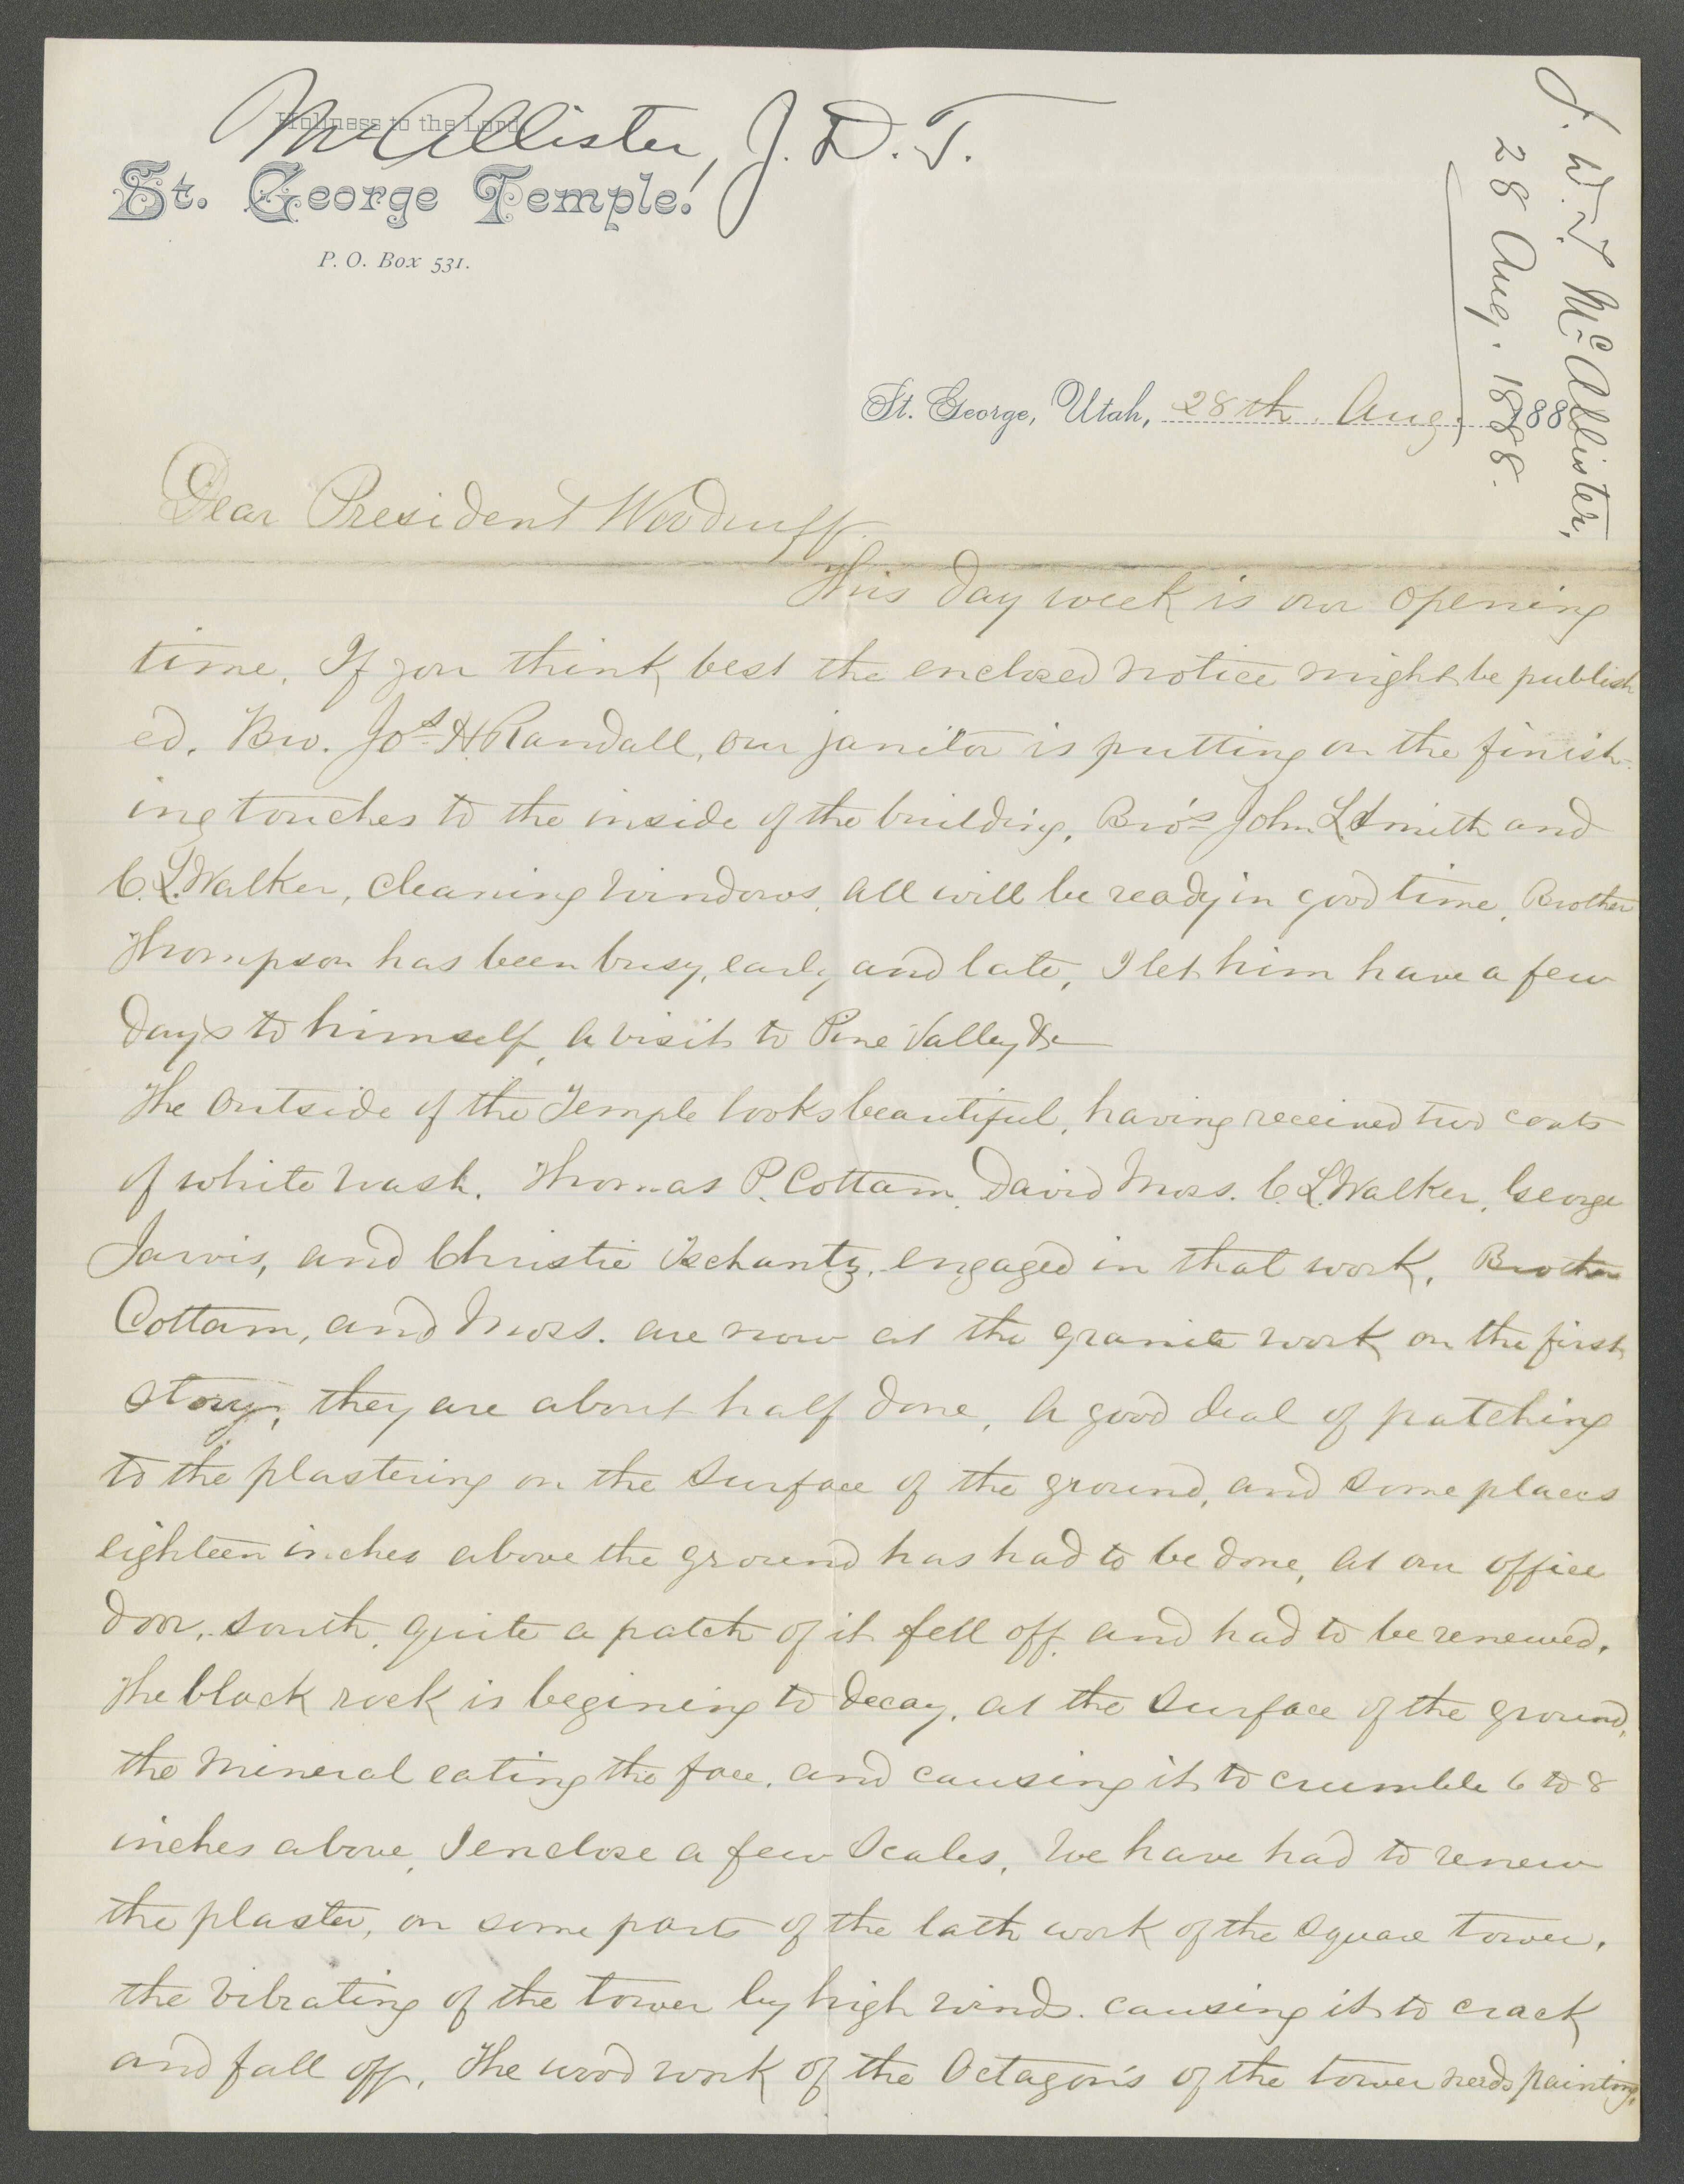 McAllister, J. D. T.
Holiness to the Lord
St. George Temple!
P. O. Box 531.
J. D. T. McAllister,
28 Aug. 1888.
St. George, Utah, 28th Aug. 1888
Dear President Woodruff.
This day week is our opening
time. If you think best the enclosed notice might be publish
ed. Bro. Jos. H Randall, our janitor is putting on the finish-
ing touches to the inside of the building. Bro's John L Smith and
C. L. Walker, cleaning windows, all will be ready in good time. Brother
Thompson has been busy, early and late, I let him have a few
days to himself, a visit to Pine Valley &c
The outside of the Temple looks beautiful, having received two coats
of white wash. Thomas P. Cottam, David Moss. C. L. Walker, George
Jarvis, and Christie Tschantz, engaged in that work. Brother
Cottam, and Moss. are now at the granite work on the first
story, they are about half done, A good deal of patching
to the plastering on the surface of the ground, and some places
eighteen inches above the ground has had to be done, at our office
door, south, quite a patch of it fell off, and had to be renewed.
The black rock is begining to decay, at the surface of the ground,
the mineral eating the face, and causing it to crumble 6 to 8
inches above, I enclose a few scales, We have had to renew
the plaster, on some parts of the lath work of the square tower.
the vibrating of the tower by high winds. causing it to crack
and fall off. The wood work of the Octagon's of the tower needs painting.